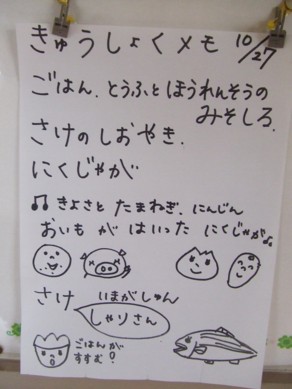 きゅうしょくメモ 10/27
ごはん.とうふとほうれんそうの
みそしる.
さけのしおやき.
にくじゃが
♫きよさと たまねぎ.にんじん
おいも が はいった にくじゃが♪
さけ いまがしゅん
しゃりさん
ごはんが
すすむ!